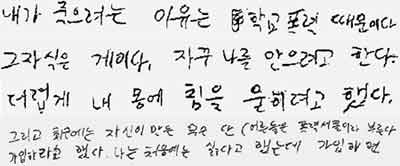 내가 죽으려는 이유는 학교폭력 때문이다
그자식은 게이다. 자꾸 나를 안으려고 한다.
더럽게 내 몸에 침을 묻히려고 했다.
그리고 최근에는 자신이 만든 무슨 단 (어른들은 폭력서클이라 부른다
가입하라고 했다. 나는 처음에는 싫다고 했는데 가입하면